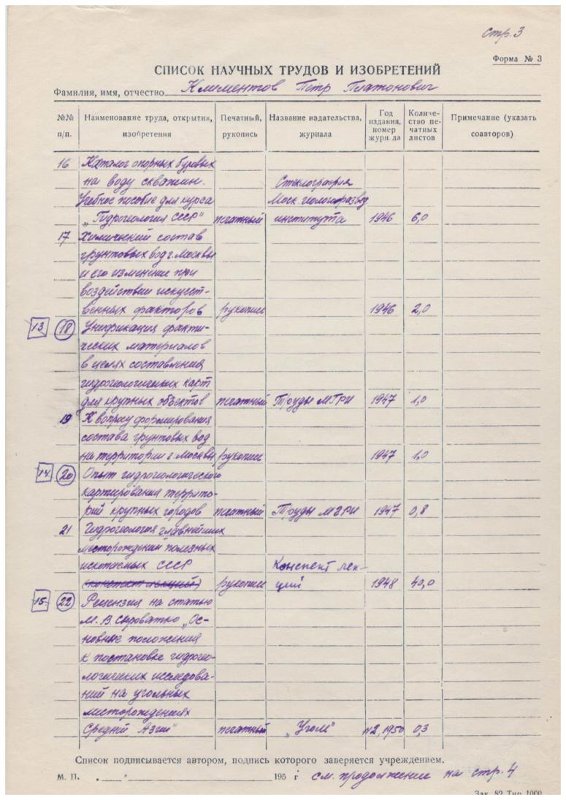 Стр. 3
Форма № 3
СПИСОК НАУЧНЫХ ТРУДОВ И ИЗОБРЕТЕНИЙ
Фамилия, имя, отчество Климентов Петр Платонович
№№ п/п. Наименование труда, открытия, изобретения Печатный, рукопись Название издательства, журнала Год издания, номер журнала Количество печатных листов Примечание (указать соавторов)
16 Каталог опорных буровых
на воду скважин. Стеклография
Учебное пособие для курса Моск геологоразвед
„Гидрогеология СССР" печатный института 1946 6,0
17 Химический состав
грунтовых вод г. Москвы
и его изменение при
воздействии искусст-
венных факторов рукопись 1946 2,0
13 18 Унификация факти-
ческих материалов
в целях составления
гидрогеологических карт
для крупных объектов печатный Труды МГРИ 1947 1,0
19 К вопросу формирования
состава грунтовых вод
на территории г. Москвы рукопись 1947 1,0
14 20 Опыт гидрогеологического
картирования террито-
рий крупных городов печатный Труды МГРИ 1947 0,8
21 Гидрогеология главнейших
месторождений полезных
ископаемых СССР Конспект лек-
рукопись ций 1948 40,0
15 22 Рецензия на статью
М. В. Сыроватко „Ос-
новные положения
к постановке гидрогео-
логических исследова-
ний на угольных
месторождениях
Средней Азии" печатный „Уголь" №2, 1950 0,3
Список подписывается автором, подпись которого заверяется учреждением.
М. П. „ " 195 г. см. продолжение на стр. 4
Зак. 82 Тир. 1000